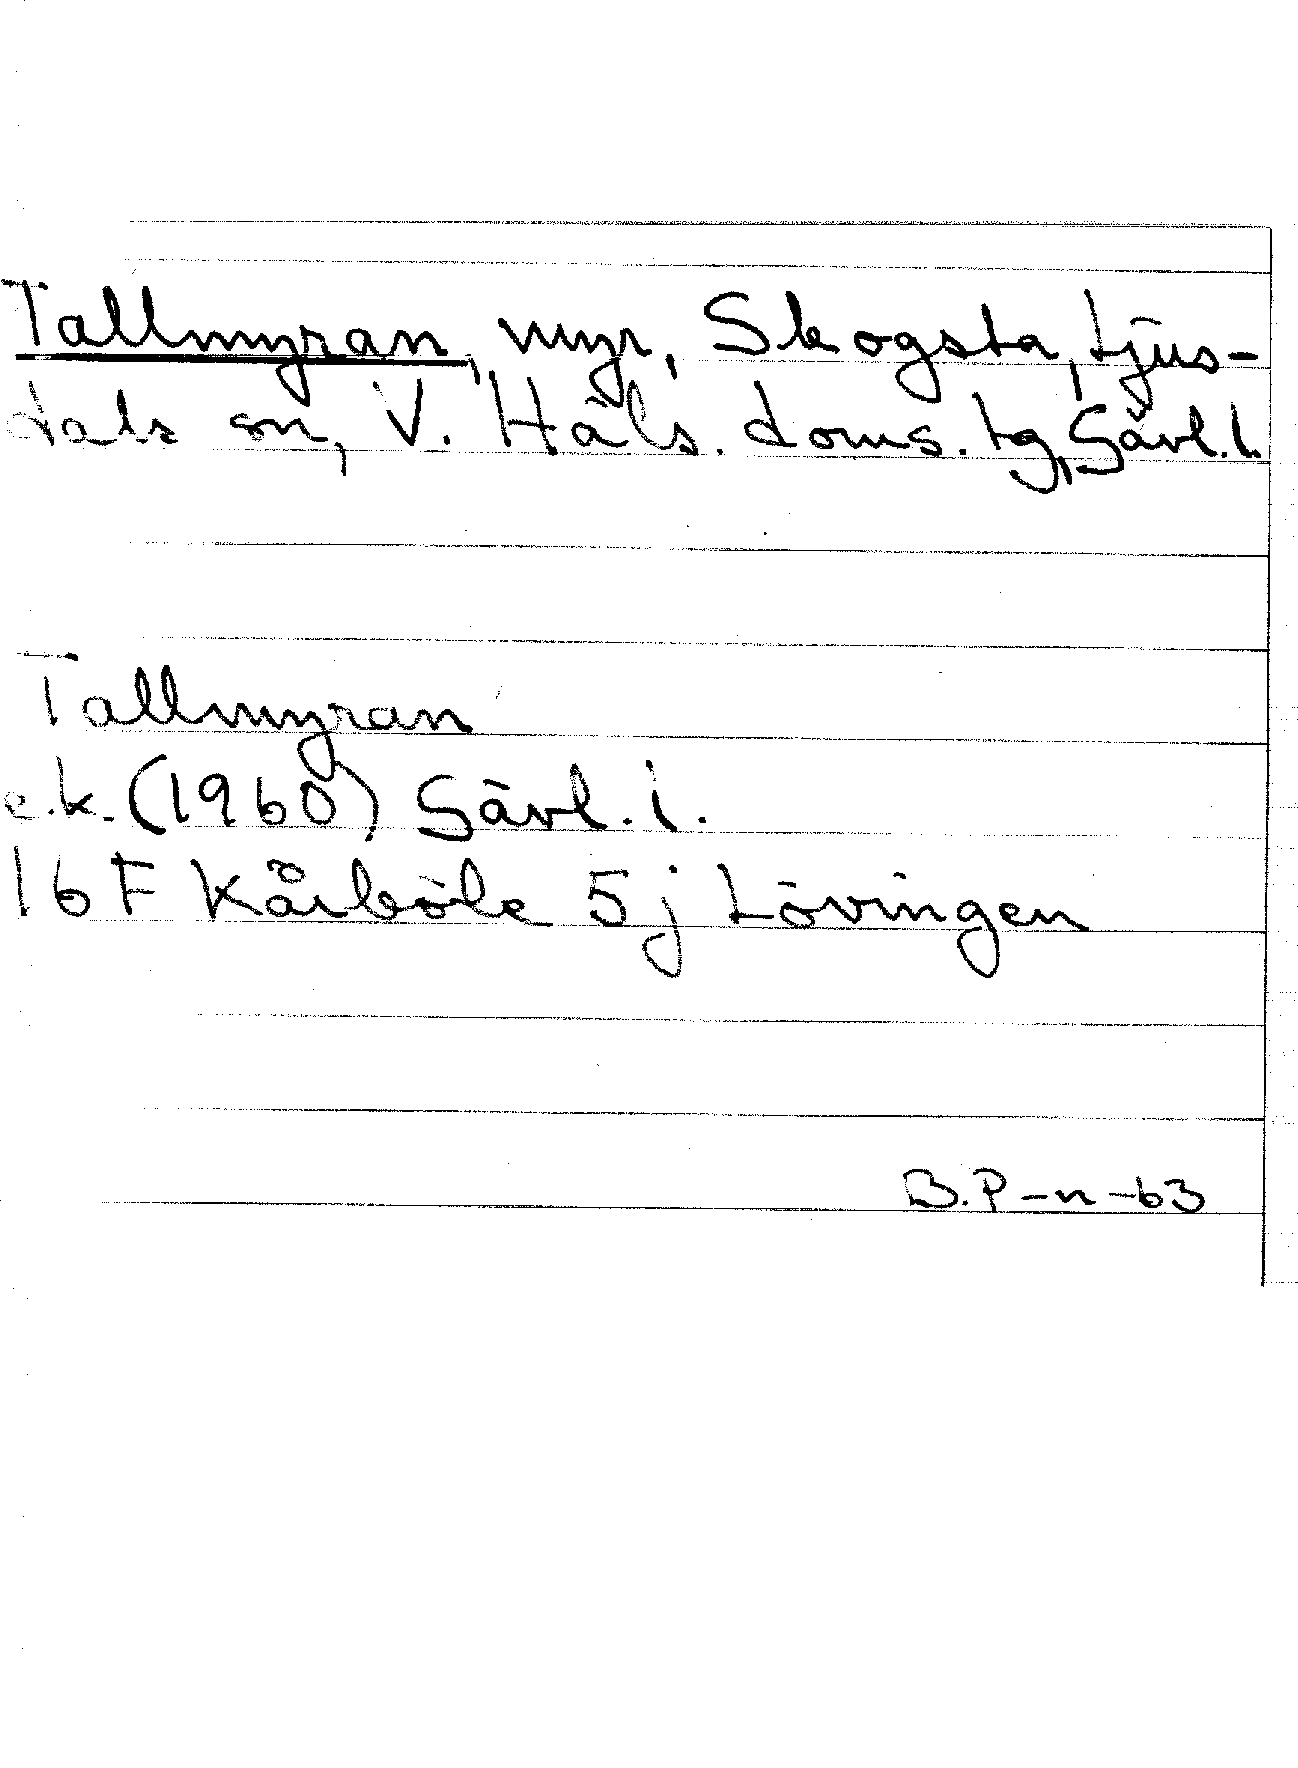 Tallmyran, myr, Skogsta, Ljus-
dals sn, V. Häls. doms. tg, Gävl. l.
Tallmyran
e.k. (1960) Gävl. l.
16 F Kårböle 5 j Lövingen
B.P-n-63